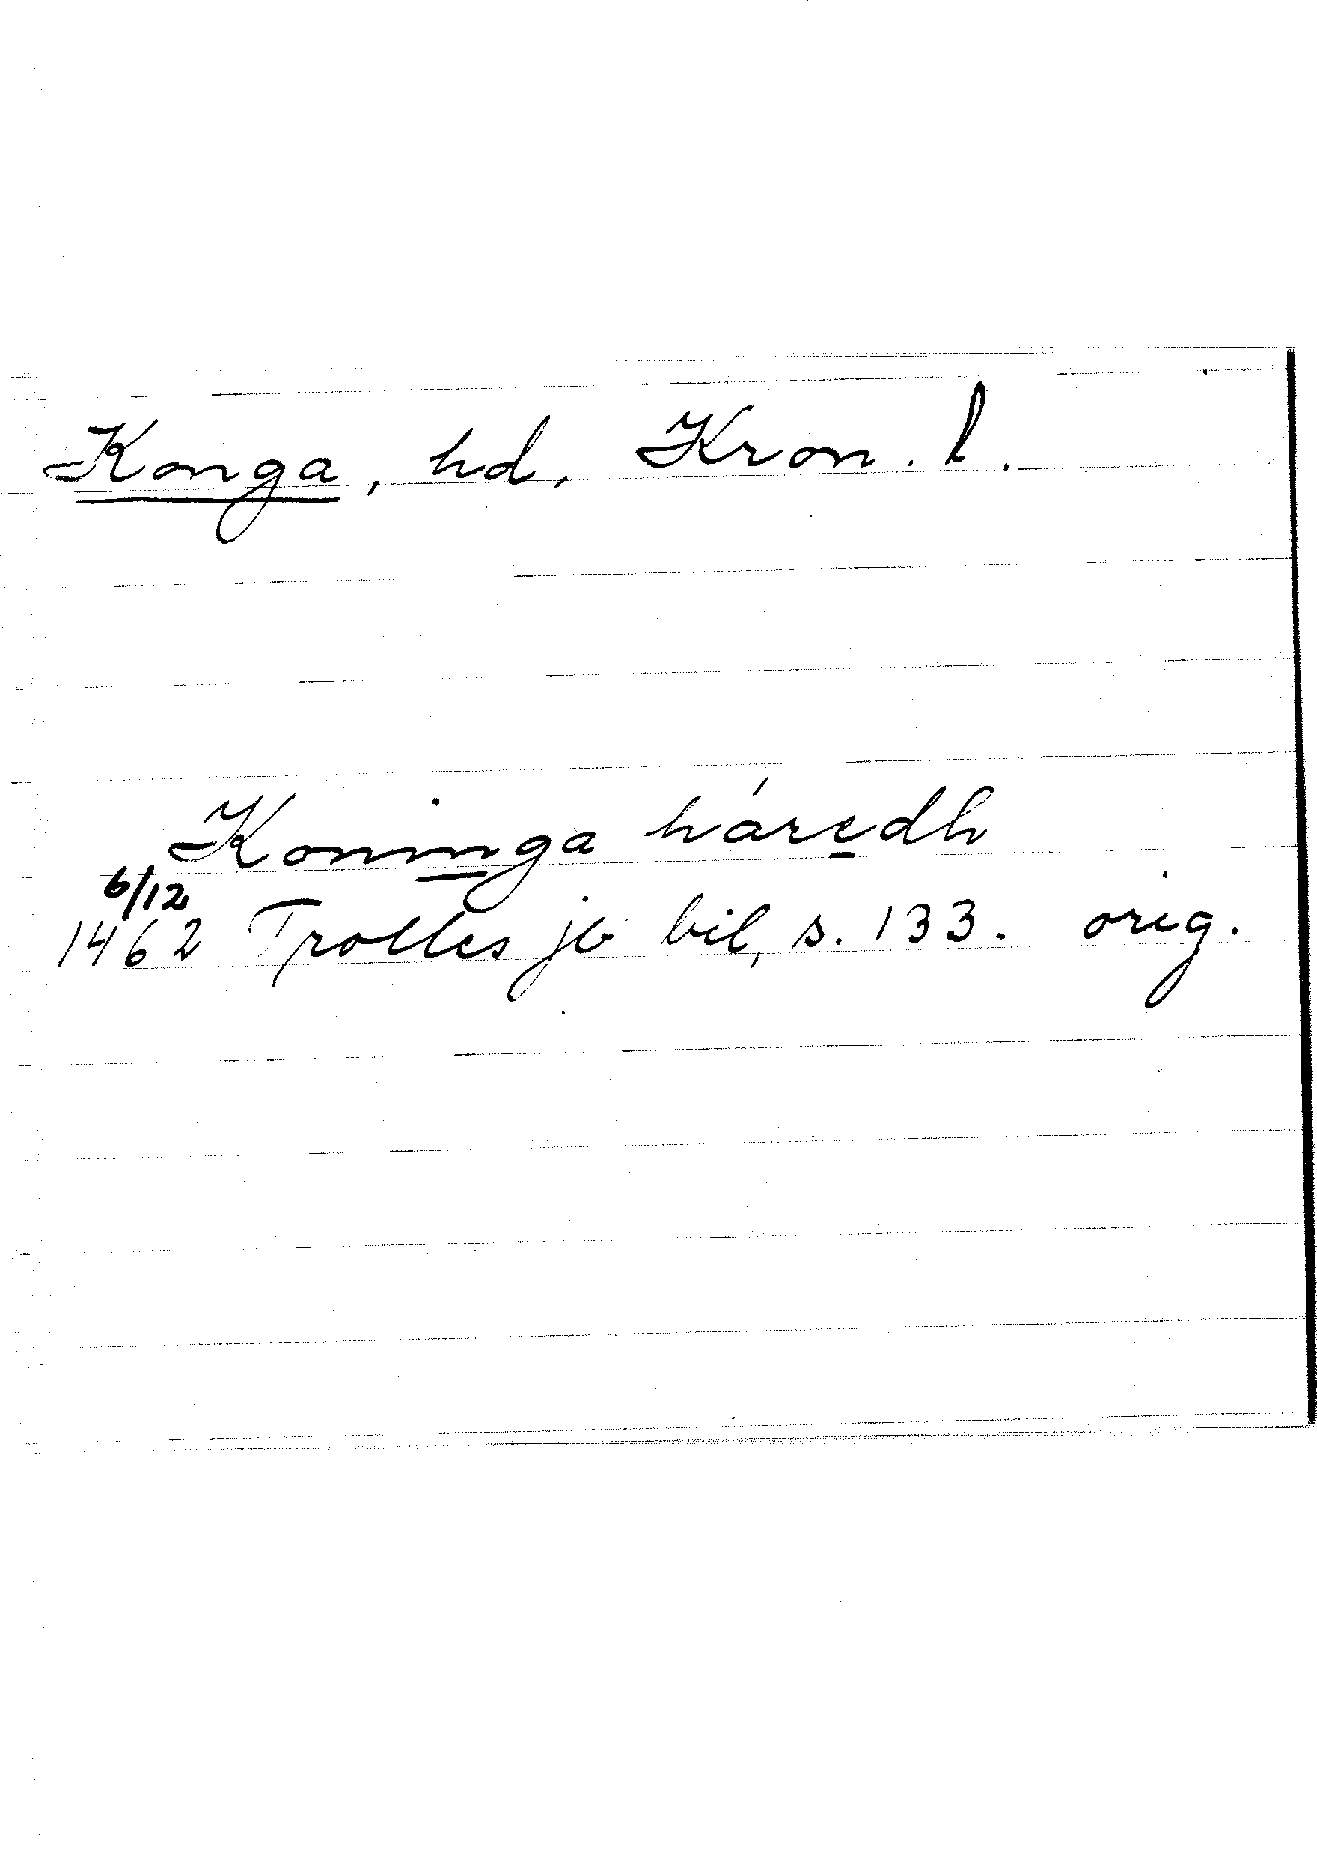 Konga, hd, Kron. l.
Koninga háredh
6/12
1462 Trolles jb bil, s. 133. orig.